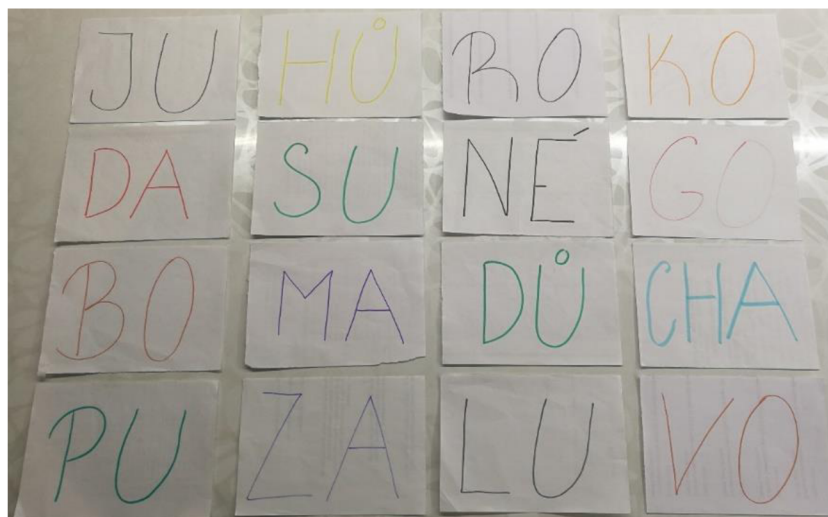 JU HŮ RO KO
DA SU NÉ GO
BO MA DŮ CHA
PU ZA LU VO